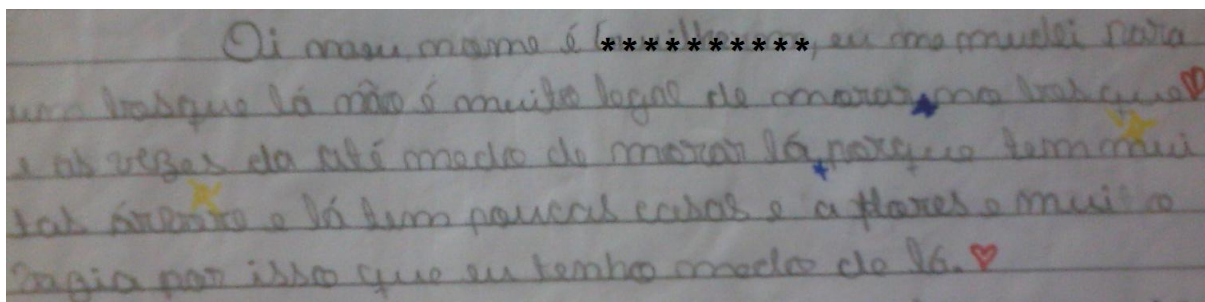 Oi meu nome é **********, eu me mudei para
um bosque lá não é muito legal de morar no bosque
e as vezes da até medo de morar lá, porque tem mui
tas árvore e lá tem poucas casas e a flores e muito
por isso que eu tenho medo de lá.